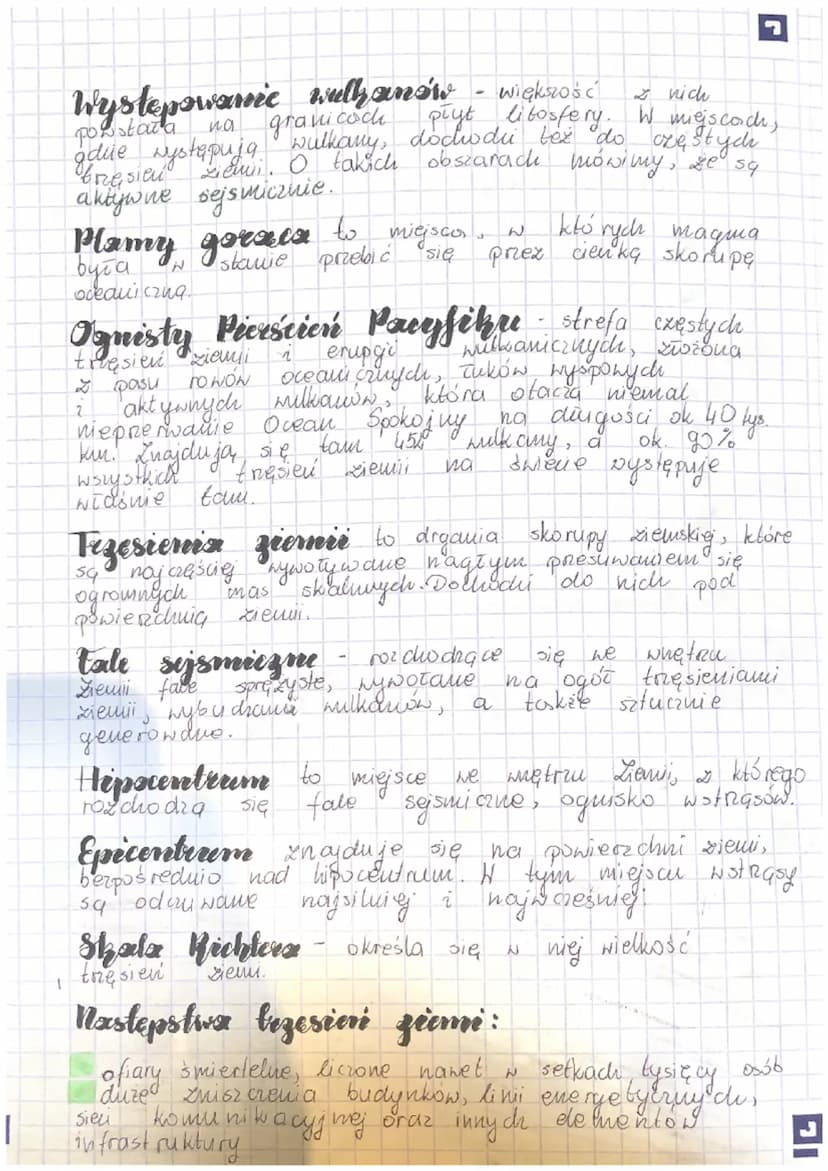 Występowanie wulkanów - większość z nich
powstała na granicach płyt litosfery. W miejscach,
gdzie występują wulkany, dochodzi też do częstych
trzęsień ziemi. O takich obszarach mówimy, że są
aktywne sejsmicznie.
Plamy gorąca to miejsca, w których magma
była w stanie przebić się przez cienką skorupę
oceaniczną.
Ognisty Pierścień Pacyfiku - strefa częstych
trzęsień ziemii i erupcji wulkanicznych, złożona
z pasu rowów oceanicznych, łuków wyspowych
i aktywnych wulkanów, która otacza niemal
nieprzerwanie Ocean Spokojny na długości ok 40 tys.
km. Znajdują się tam 452 wulkany, a ok. 90%
wszystkich trzęsień ziemii na świecie występuje
właśnie tam.
Trzęsienia ziemii to drgania skorupy ziemskiej, które
są najczęściej wywoływane nagłym przesuwaniem się
ogromnych mas skalnych. Dochodzi do nich pod
powierzchnią ziemi.
Fale sejsmiczne - rozchodzące się we wnętrzu
Ziemii fale sprężyste, wywołane na ogół trzęsieniami
ziemii, wybuchami wulkanów, a także sztucznie
generowane.
Hipocentrum to miejsce we wnętrzu Ziemi, z którego
rozchodzą się fale sejsmiczne, ognisko wstrząsów.
Epicentrum znajduje się na powierzchni ziemi,
bezpośrednio nad hipocentrum. W tym miejscu wstrząsy
są odczuwane najsilniej i najwcześniej.
Skala Richtera - określa się w niej wielkość
trzęsień ziemi.
Następstwa trzęsień ziemi:
ofiary śmiertelne, liczone nawet w setkach tysięcy osób
duże zniszczenia budynków, linii energetycznych,
sieci komunikacyjnej oraz innych elementów
infrastruktury